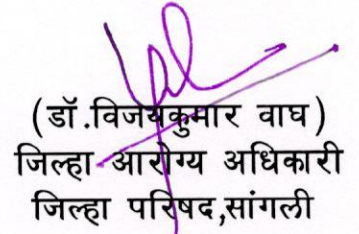 (डॉ.विजयकुमार वाघ)
जिल्हा आरोग्य अधिकारी
जिल्हा परिषद,सांगली